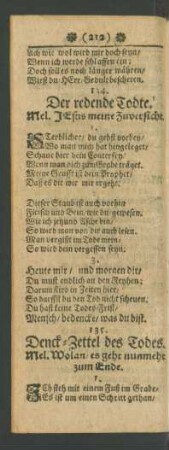 (212)
Ach wie wol wird mir doch seyn/
Wenn ich werde schlaffen ein:
Doch soll es noch länger währen/
Wirst du HErr Gedult bescheren.
134.
Der redende Todte.
Mel. JEsus meine Zuversicht.
1.
STerblicher/ du gehst vorbey/
Wo man mich hat hingeleget/
Schaue hier dein Conterfey/
Wenn man dich zum Grabe träget.
Meine Grufft ist dein Prophet/
Daß es dir wie mir ergeht.
2.
Dieser Staub ist auch vorhin
Fleisch und Bein/ wie du/ gewesen.
Wie ich jetzund Asche bin/
So wird man von dir auch lesen.
Man vergißt im Tode mein/
So wird dein vergessen seyn.
3.
Heute mir/ und morgen dir/
Du must endlich an den Reyhen;
Darum stirb in Zeiten hier/
So darffst du den Tod nicht scheuen.
Du hast keine Todes-Frist/
Mensch/ bedencke/ was du bist.
135.
Denck-Zettel des Todes.
Mel. Wolan/ es geht nunmehr
zum Ende.
1.
ICh steh mit einem Fuß im Grabe/
Es ist um einen Schritt gethan/